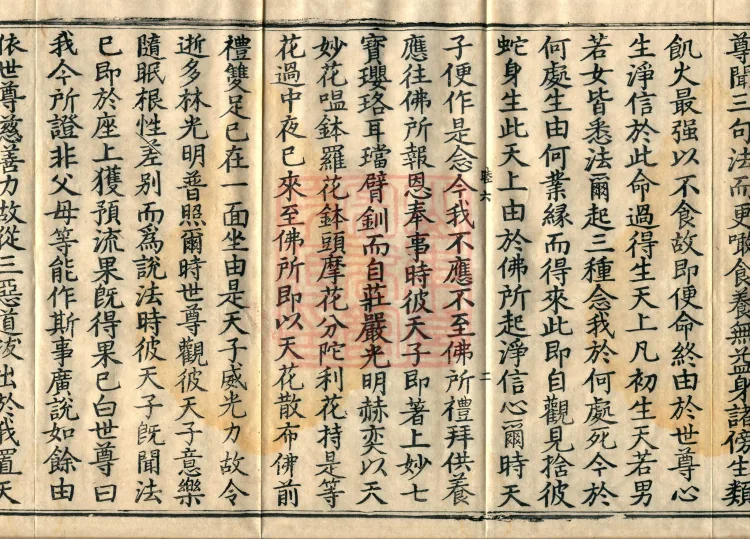 尊聞三句法而更噉食養無益身諸傍生類
飢火最强以不食故即便命終由於世尊心
生淨信於此命過得生天上凡初生天若男
若女皆悉法爾起三種念我於何處死今於
何處生由何業緣而得來此即自觀見捨彼
蛇身生此天上由於佛所起淨信心爾時天
子便作是念今我不應不至佛所禮拜供養
睦六 二
應往佛所報恩奉事時彼天子即著上妙七
寶瓔珞耳璫臂釧而自莊嚴光明赫奕以天
妙花嗢鉢羅花鉢頭摩花分陀利花持是等
花過中夜已來至佛所即以天花散布佛前
禮雙足已在一面坐由是天子威光力故令
逝多林光明普照爾時世尊觀彼天子意樂
隨眠根性差別而爲說法時彼天子旣聞法
已即於座上獲預流果旣得果已白世尊曰
我今所證非父母等能作斯事廣說如餘由
依世尊慈善力故從三惡道拔出於我置天